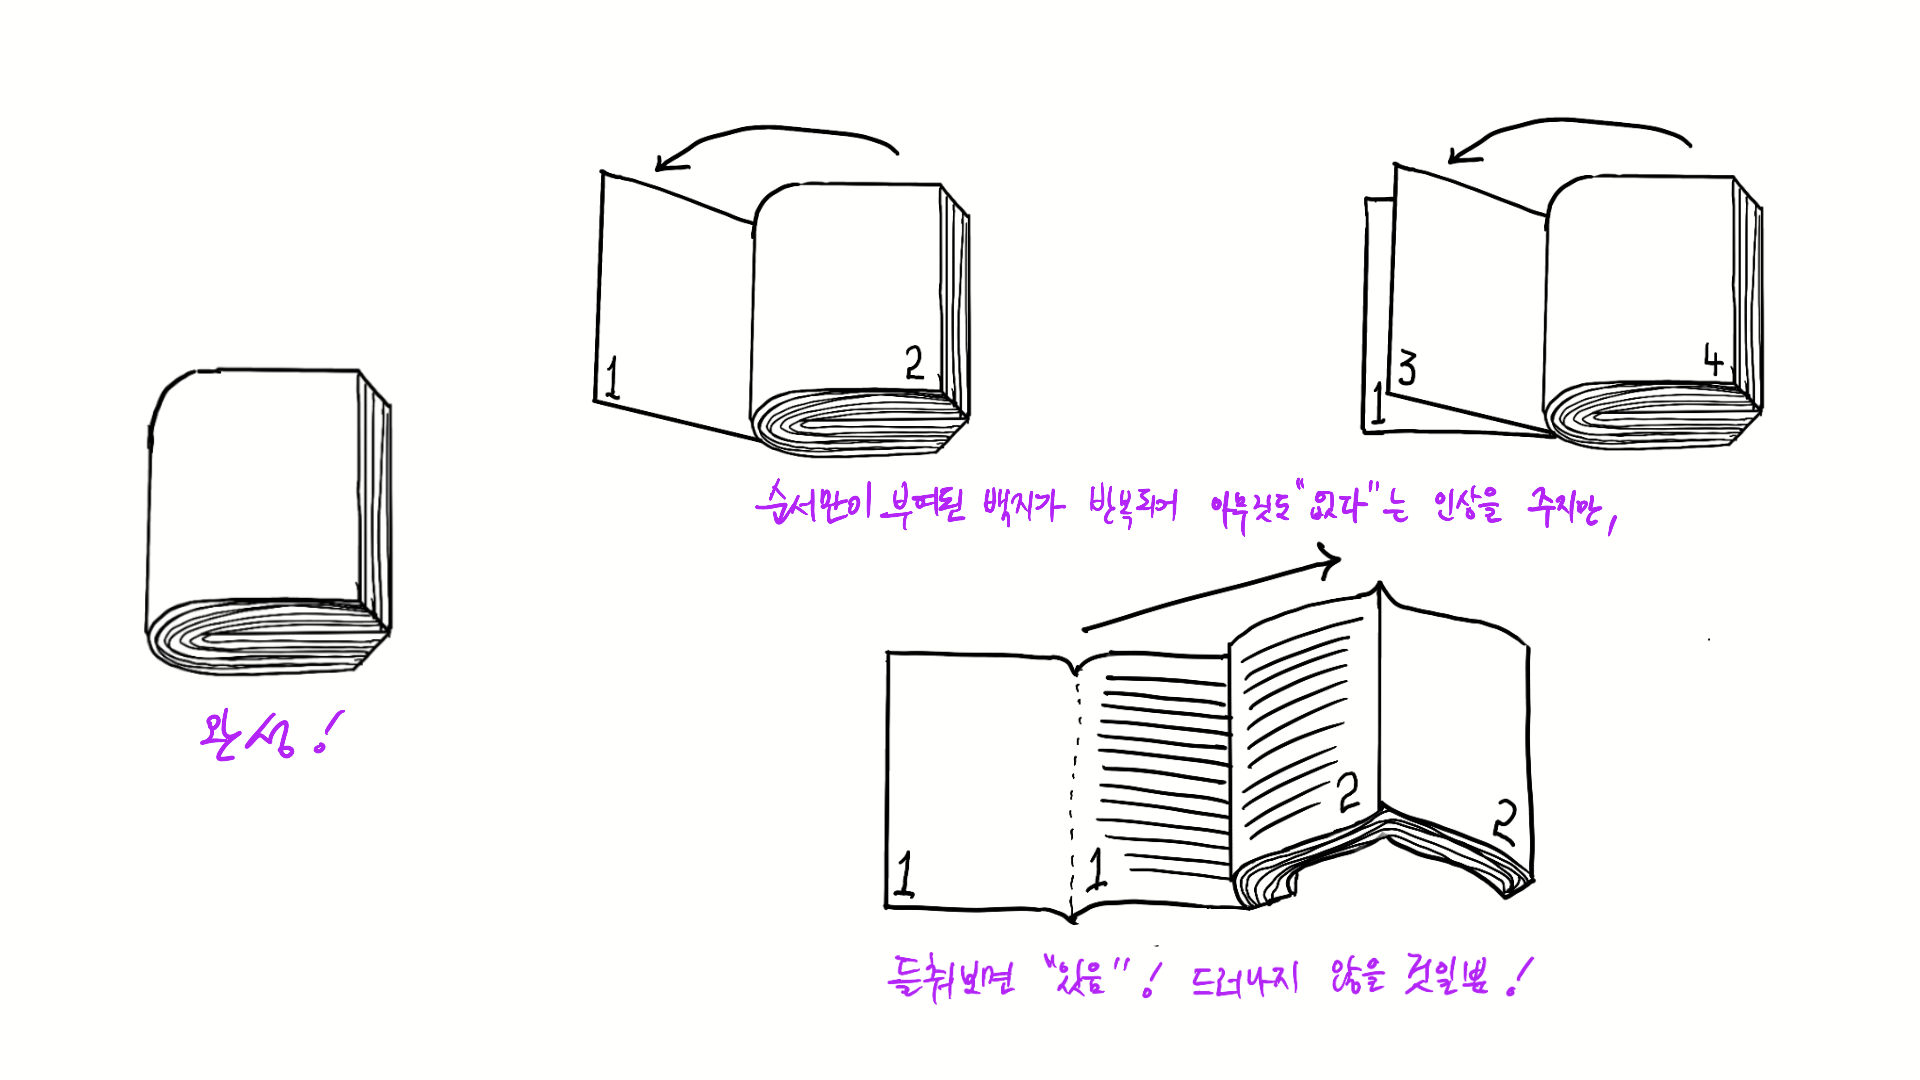 1
2
3
1
4
순서만이 부여된 백지가 반복되어 아무것도 "없다"는 인상을 주지만,
완성!
1
1
2
2
들춰보면 "있음"! 드러나지 않을 것일뿐!